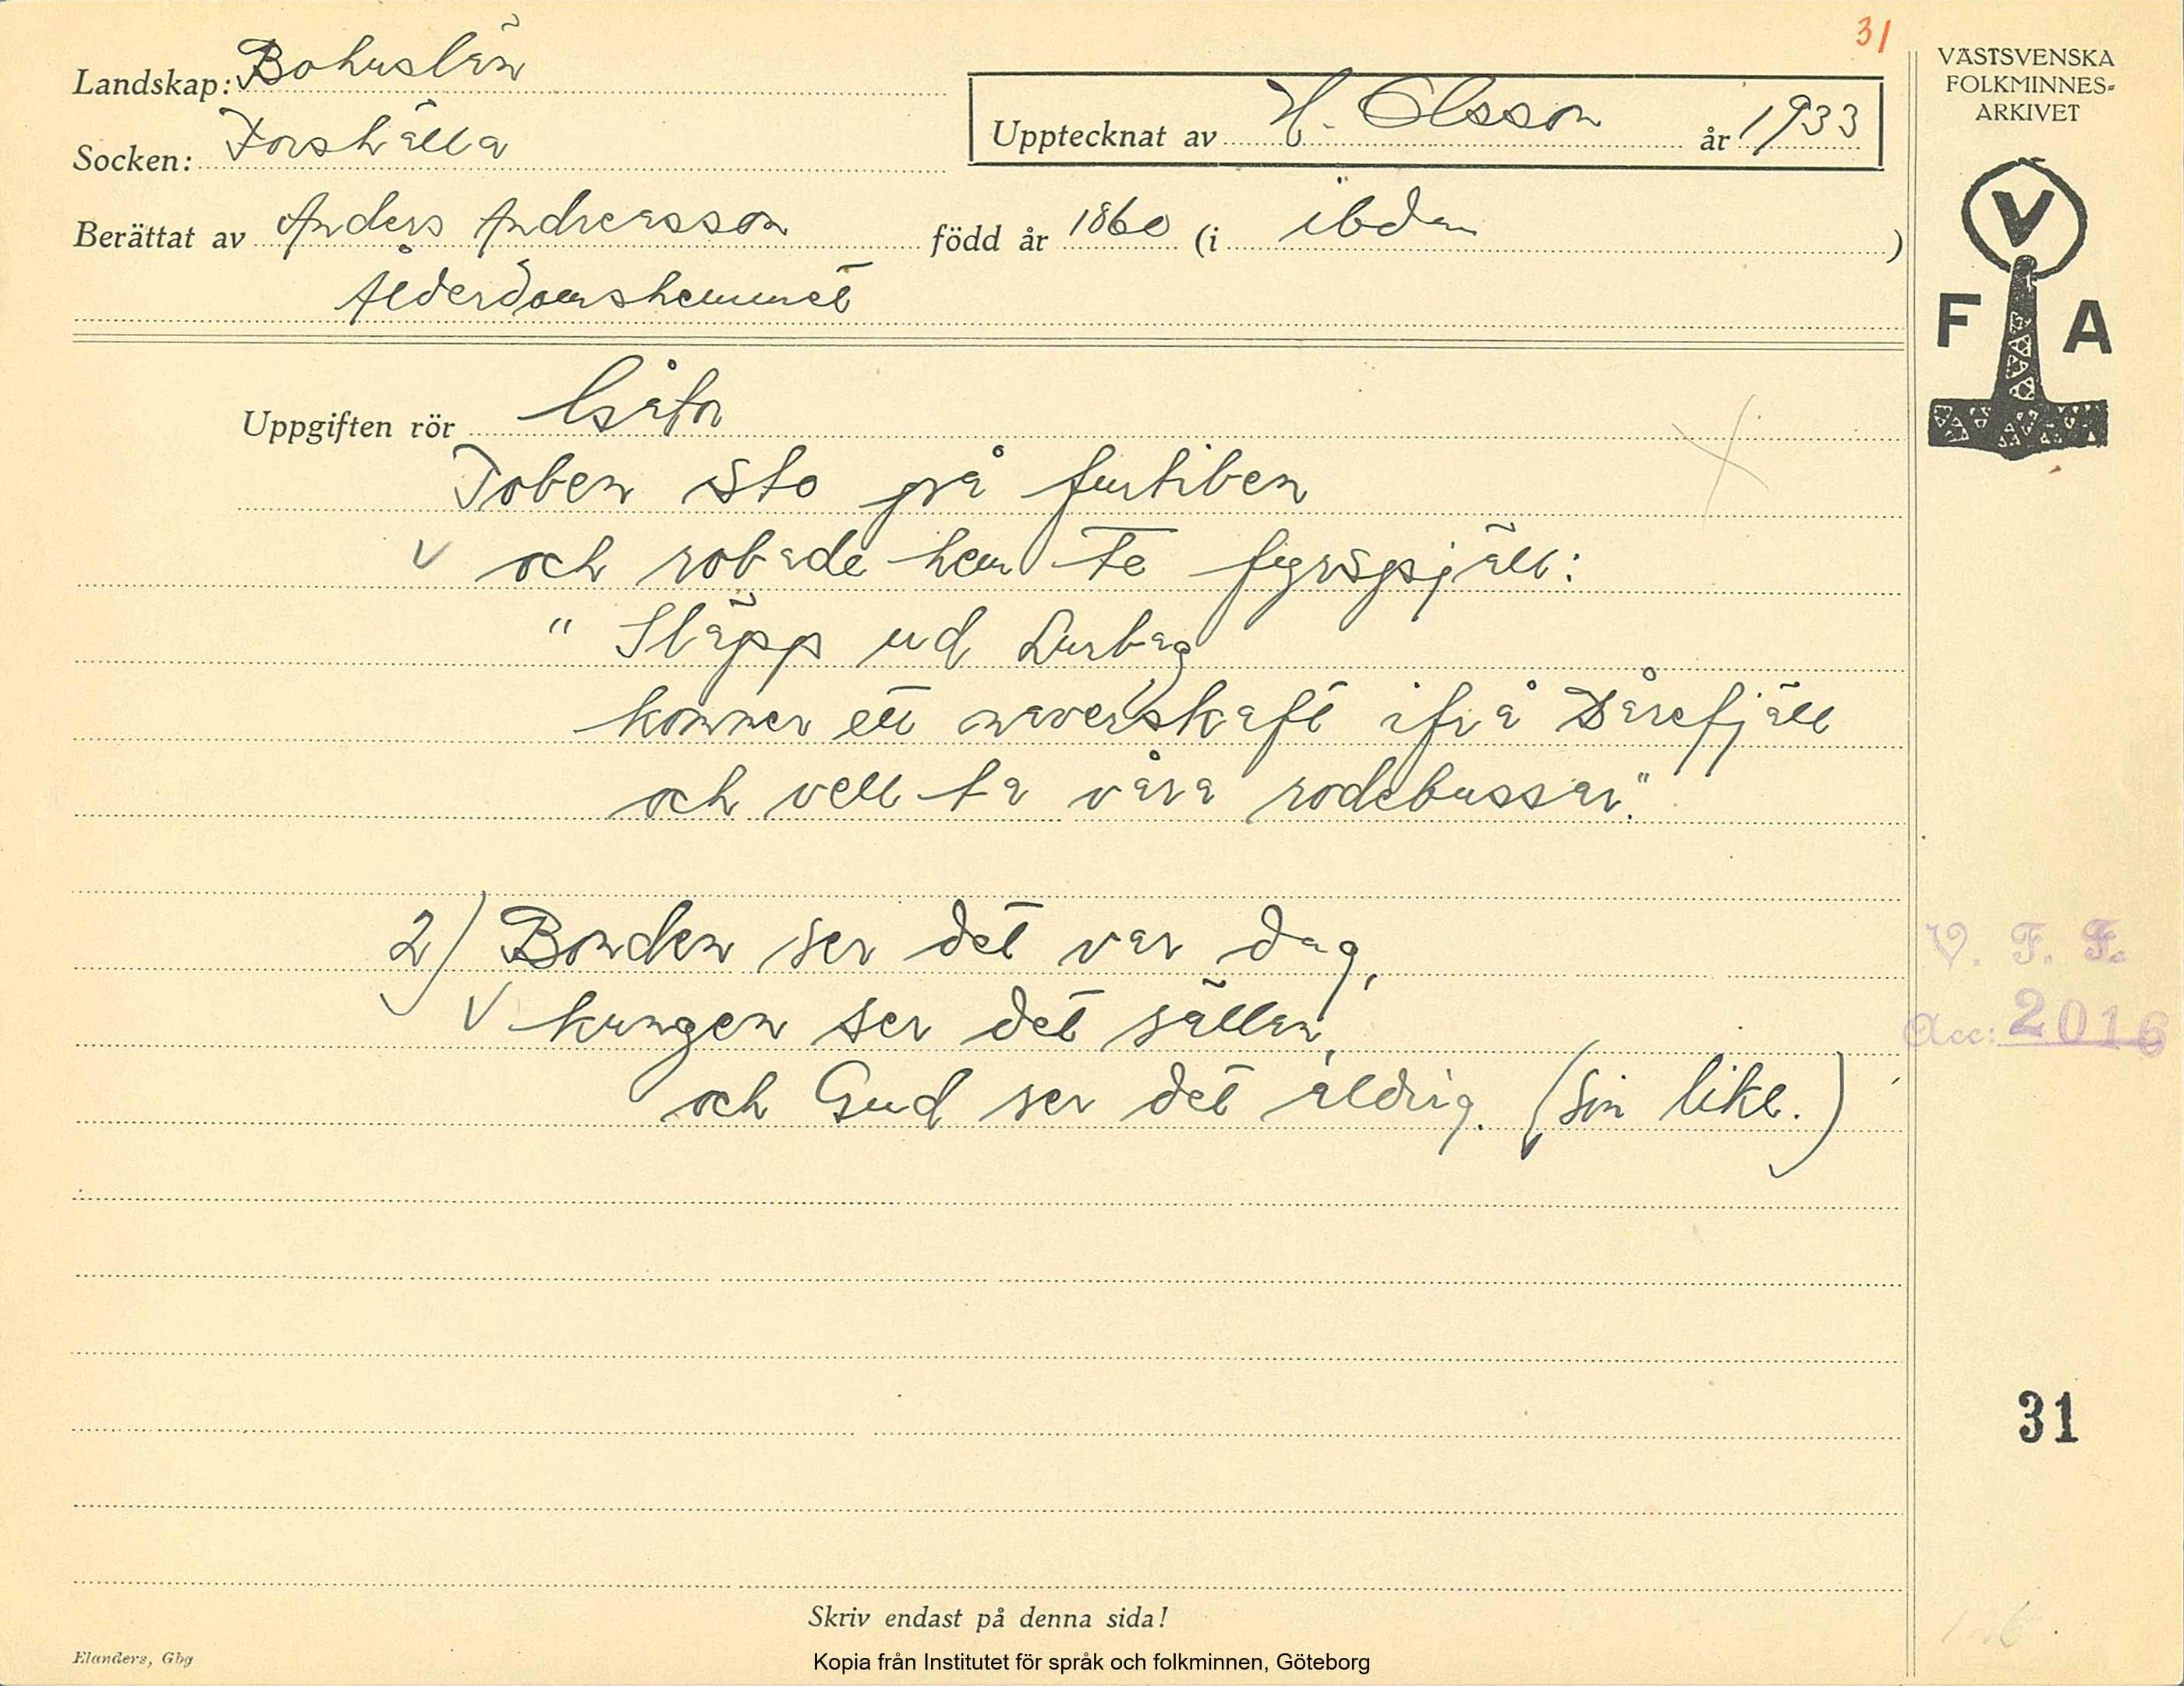 31
VÄSTSVENSKA
FOLKMINNES-
ARKIVET
Landskap: Bohuslän
Upptecknat av H. Olsson år 1933
Socken: Forshälla
Berättat av Anders Andreasson född år 1860 (i ibdm )
Ålderdomshemmet
V
F A
Uppgiften rör Gåtor
Toben sto på furtiben
och robade hem te fyrspjäll:
" Släpp ud Lurbag
kommer ett naverskaft ifrå Dårefjäll
och vell ta våra rodebussar."
2) Bonden ser det var dag,
kungen ser det sällan,
och Gud ser det aldrig. (sin like.)
V. F. F.
Acc: 2016
31
Skriv endast på denna sida!
Elanders, Gbg
Kopia från Institutet för språk och folkminnen, Göteborg